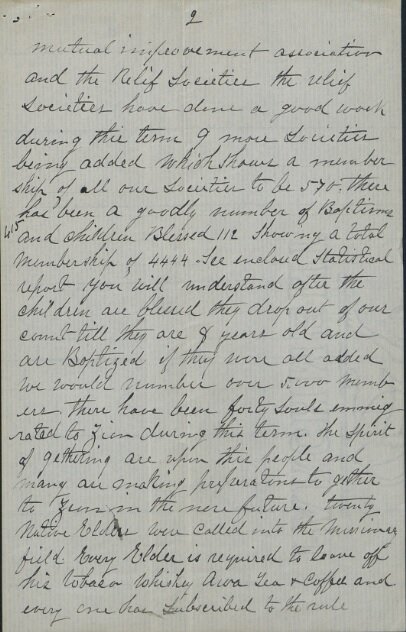 2
mutual improvement association
and the Relif Societies the relief
Societies have done a good work
during this term 9 more Societies
being added which shows a member
ship of all our Societies to be 570. there
has been a goodly number of Baptisms
415
and children Blessed 112 Showing a total
membership of 4444. See enclosed Statistical
report. You will understand after the
children are blessed they drop out of our
count till they are 8 years old and
are Baptized if they were all added
we would number over 5.000 memb
ers. there have been forty souls emmig
rated to Zion during this term. the spirit
of gethering are upon this people and
many are making preparations to gether
to Zion in the nere future. twenty
Native Elders were called into the Missionary
field Every Elder is required to leave off
his tobaco Whisky Awa Tea & Coffee and
every one has Subscribed to the rule